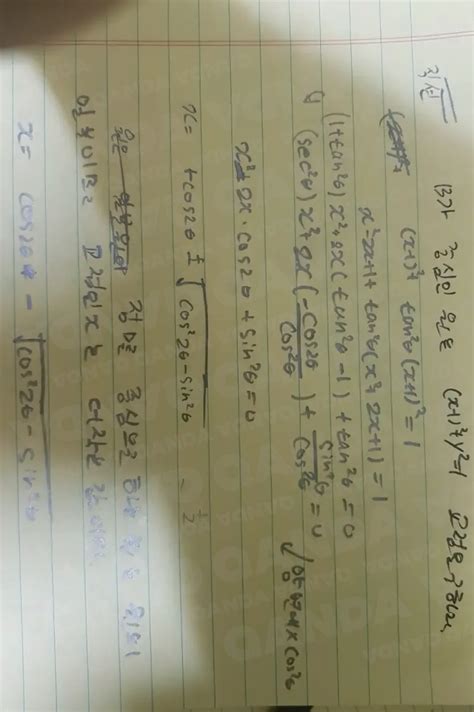 직선
B가 중심인 원은 (x-1)²+y²=1 교점을 구하면,
(x-1)²+ tan²θ(x+1)²=1
x²-2x+1+ tan²θ(x²+2x+1)=1
(1+tan²θ)x²+2x(tan²θ-1)+tan²θ=0
(sec²θ)x²+2x(-cos2θ/cos²θ)+sin²θ/cos²θ=0 양변에×cos²θ
x²-2x·cos2θ+sin²θ=0
x= +cos2θ ± √cos²2θ-sin²θ
원은 점 B를 중심으로 하는 원의
일부이므로 교점인 x는 더 작은 값이다.
x= cos2θ - √cos²2θ-sin²θ
QANDA